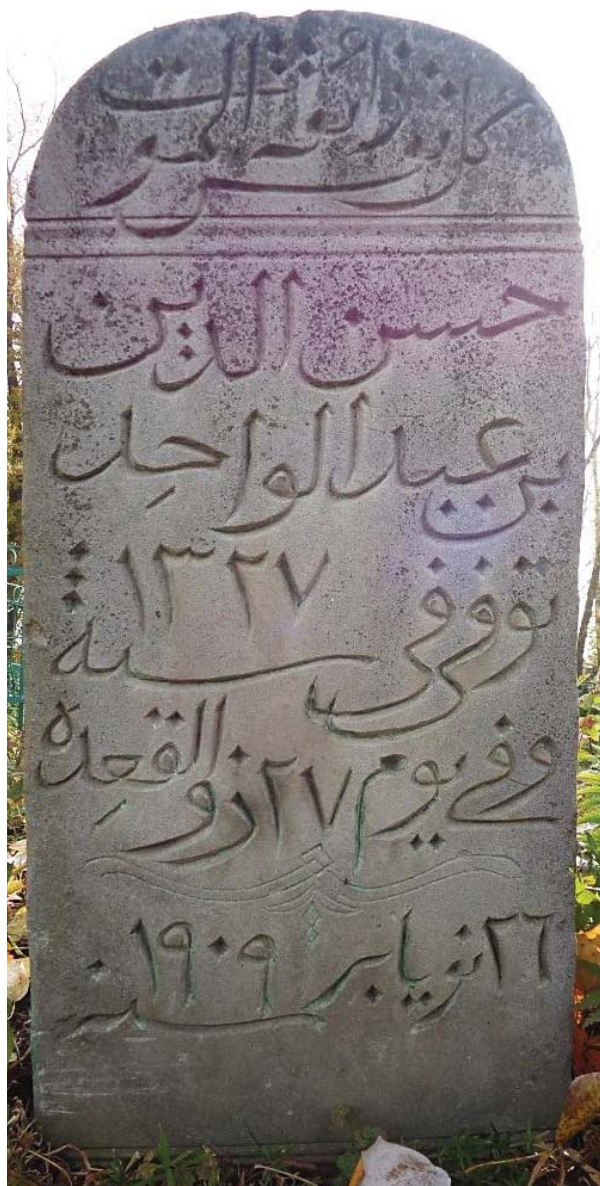 كل نفس زائقة الموت
حسن الدين
بن عبد الواحد
توفى فى سنة ١٣٢٧
وفى يوم ٢٧ ذو القعده
٢٦ نويابر ١٩٠٩ سنه